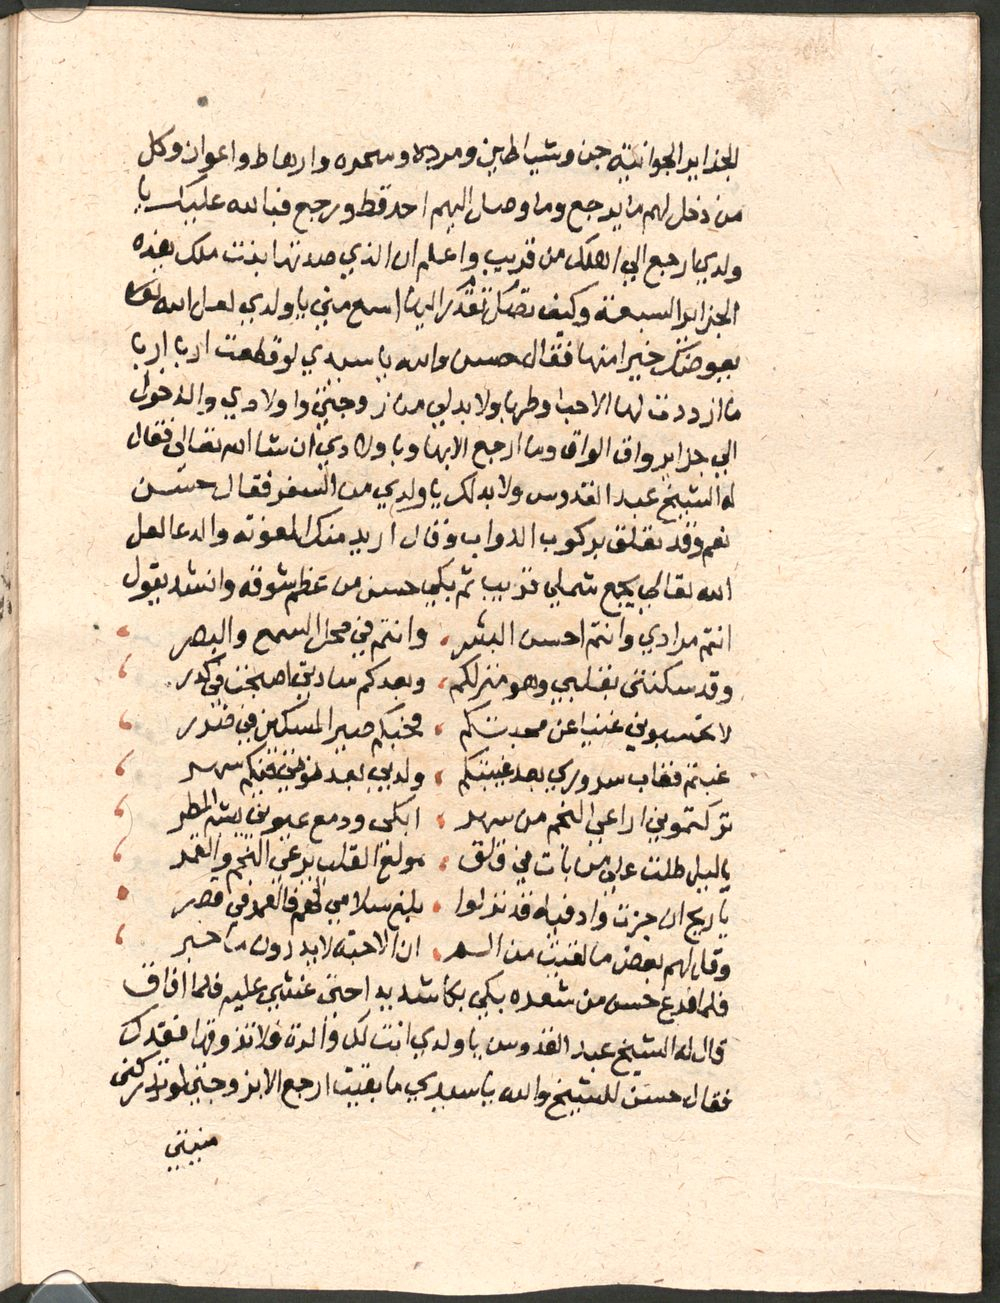 الجزاير الجوانية جن وشياطين ومرده وسحره وارهاط واعوان وكل
من دخل لهم ما يرجع وما وصل اليهم احد قط ورجع فبالله عليك يا
ولدي ارجع الي اهلك من قريب واعلم ان الذي صدتها بنت ملك هذه
الجزاير السبعة وكيف تصل تقدر اليها اسمع مني يا ولدي لعل الله
يعوضك خيرا منها فقال حسن والله يا سيدي لو قطعت اربا اربا
ما ازددت لها الا حبا وطربا ولا بد لي من زوجتي واولادي والدخول
الي جزاير واق الواق وما ارجع الا بها وباولادي ان شا الله تعالى فقال
له الشيخ عبد القدوس ولا بد لك يا ولدي من السفر فقال حسن
نعم وقد تعلق بركوب الدواب وقال اريد منك المعونه والدعا لعل
الله تعالي يجمع شملي قريب ثم بكي حسن من عظم شوقه وانشد يقول
انتم مرادي وانتم احسن البشر ، وانتم في محل السمع والبصر
وقد سكنتم بقلبي وهو منزلكم ، وبعدكم سادتي اصبحت في كدر
لا تحسبوني غنيا عن محبتكم ، محبكم صير المسكين في ضرر
غبتم فغاب سروري بعد غيبتكم ،
تركتموني اراعي النجم من سهر ، ابكي ودمع عيوني يشبه المطر
يا ليل طلت علي من بات في قلق ، مولع القلب يرعي النجم والقمر
يا ريح ان جزت وادفيه قد نزلوا ، بلغ سلامي لهم فالعمر في قصر
وقل لهم بعض ما لقيت من الم ، ان الاحبة لا يدرون ما خبر
فلما فرغ حسن من شعره بكي بكا شديدا حتى غشي عليه فلما افاق
قال له الشيخ عبد القدوس يا ولدي انت لك والدة فلا تذوقها فقدك
فقال حسن للشيخ والله يا سيدي ما بقيت ارجع الا بزوجتي او تدركني
منيتي